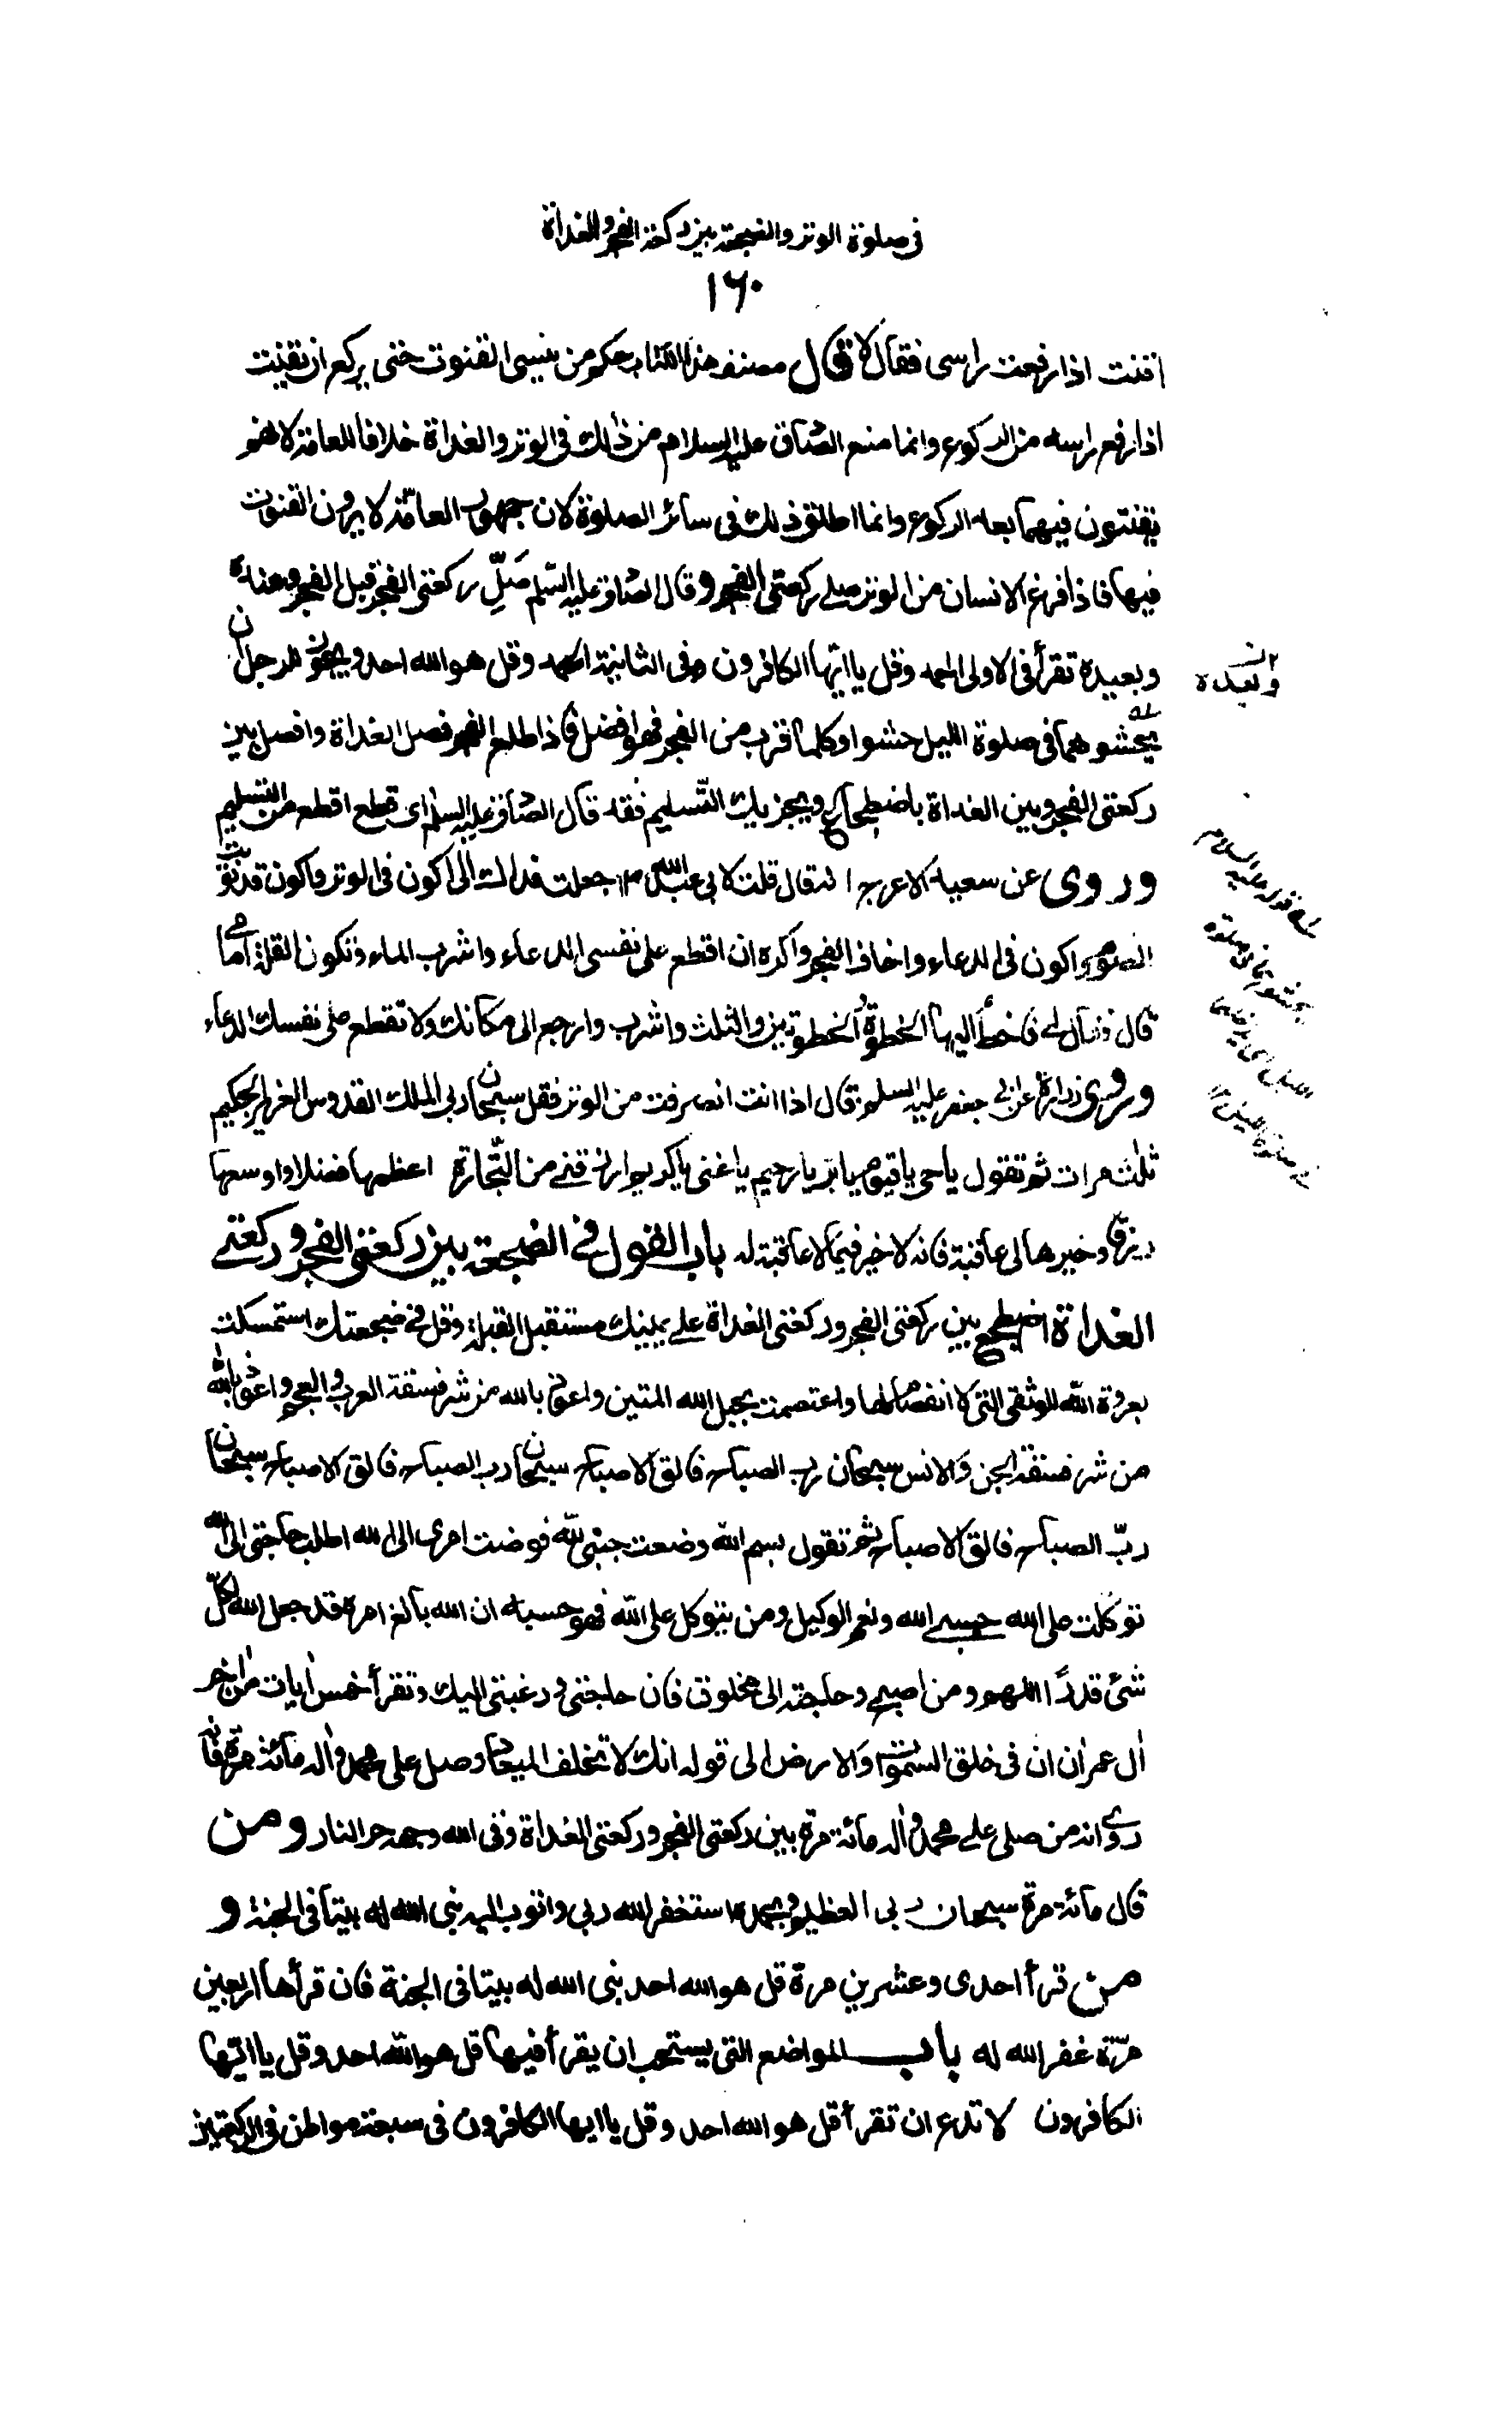 فى صلوة الوتر والضجعة بين ركعتى الفجر والغداة
۱۶۰
اقنت اذا رفعت راسى فقال لا قال مصنف هذا الكتاب حكم من ينسى القنوت حتى يركع ان يقنت
اذا رفع راسه من الركوع وانما منع الصادق عليه السلام من ذلك فى الوتر والغداة خلافا للعامة لانهم
يقنتون فيهما بعد الركوع وانما اطلق ذلك فى سائر الصلوة لان جمهور العامّة لا يرون القنوت
فيها فاذا فرغ الانسان من الوتر صلى ركعتى الفجر وقال الصادق عليه السّلم صَلِّ ركعتى الفجر قبل الفجر وعنده
وبعيده تقرأ فى الاولى الحمد وقل يا ايّها الكافرون وفى الثانية الحمد وقل هو الله احد ويجوز للرجل ان
يحشوهما فى صلوة الليل حشوا وكلما قرب من الفجر فهو افضل فاذا طلع الفجر فصل الغداة وافصل بين
ركعتى الفجر وبين الغداة باضطجاع ويجزيك التّسليم فقد قال الصادق عليه السلم اى قطع اقطع من التسليم
وروى عن سعيد الاعرج انه قال قلت لابى عبد الله ع جعلت فداك انى اكون فى الوتر واكون قد نويت
الصوم واكون فى الدعاء واخاف الفجر واكره ان اقطع على نفسى الدعاء واشرب الماء وتكون القلة امامى
قال فقال لى فاخطُ اليها الخطوة والخطوتين والثلث واشرب وارجع الى مكانك ولا تقطع على نفسك الدعاء
وروى زرارة عن ابى جعفر عليه السلم قال اذا انت انصرفت من الوتر فقل سبحان ربى الملك القدوس العزيز الحكيم
ثلث مرات ثم تقول ياحى ياقيوم يابر يارحيم ياغنى ياكريم ارزقنى من التّجارة اعظمها فضلا واوسعها
رزقا وخيرها لى عاقبة فانه لا خير فيما لا عاقبة له باب القول فى الضجعة بين ركعتى الفجر وركعتى
الغداة اضطجع بين ركعتى الفجر وركعتى الغداة على يمينك مستقبل القبلة وقل فى ضجعتك استمسكت
بعروة الله الوثقى التى لا انفصام لها واعتصمت بحبل الله المتين واعوذ بالله من شر فسقة العرب والعجم واعوذ بالله
من شر فسقة الجن والانس سبحان رب الصباح فالق الاصباح سبحان رب الصباح فالق الاصباح سبحان
ربّ الصباح فالق الاصباح ثم تقول بسم الله وضعت جنبى لله فوضت امرى الى الله اطلب حاجتى الى الله
توكلت على الله حسبى الله ونعم الوكيل ومن يتوكل على الله فهو حسبه ان الله بالغ امره قد جعل الله لكلّ
شئ قدرًا اللهم ومن اصبح وحاجته الى مخلوق فان حاجتى ورغبتى اليك وتقرأ خمس ايات من اخر
ال عمران ان فى خلق السموات والارض الى قوله انك لا تخلف الميعاد وصل على محمد واله مائة مرة فانه
روى انه من صلى على محمد واله مائة مرة بين ركعتى الفجر وركعتى الغداة وقى الله وجهه حر النار ومن
قال مائة مرة سبحان ربى العظيم وبحمده استغفر الله ربى واتوب اليه بنى الله له بيتا فى الجنة و
من قرأ احدى وعشرين مرة قل هو الله احد بنى الله له بيتا فى الجنة فان قرأها اربعين
مرّة غفر الله له باب المواضع التى يستحب ان يقرأ فيها قل هو الله احد وقل يا ايّها
الكافرون لا تدع ان تقرأ قل هو الله احد وقل يا ايها الكافرون فى سبعة مواطن فى الركعتين
وبعده
قوله عليه السلام
يحشوهما فى صلوة
الليل